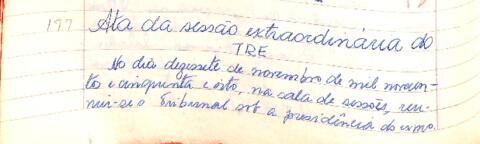 177 Ata da sessão extraordinária do
TRE
No dia dezessete de novembro de mil novecen-
to e cinquenta e oito, na sala de sessões, reu-
niu-se o Tribunal sob a presidência do exmo.